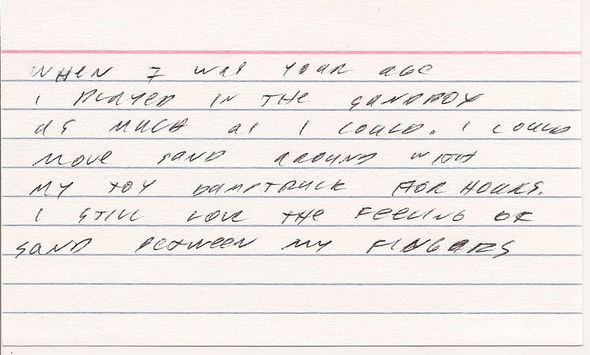 WHEN I WAS YOUR AGE
I PLAYED IN THE SANDBOX
AS MUCH AS I COULD. I COULD
MOVE SAND AROUND WITH
MY TOY DUMPTRUCK FOR HOURS.
I STILL LOVE THE FEELING OF
SAND BETWEEN MY FINGERS